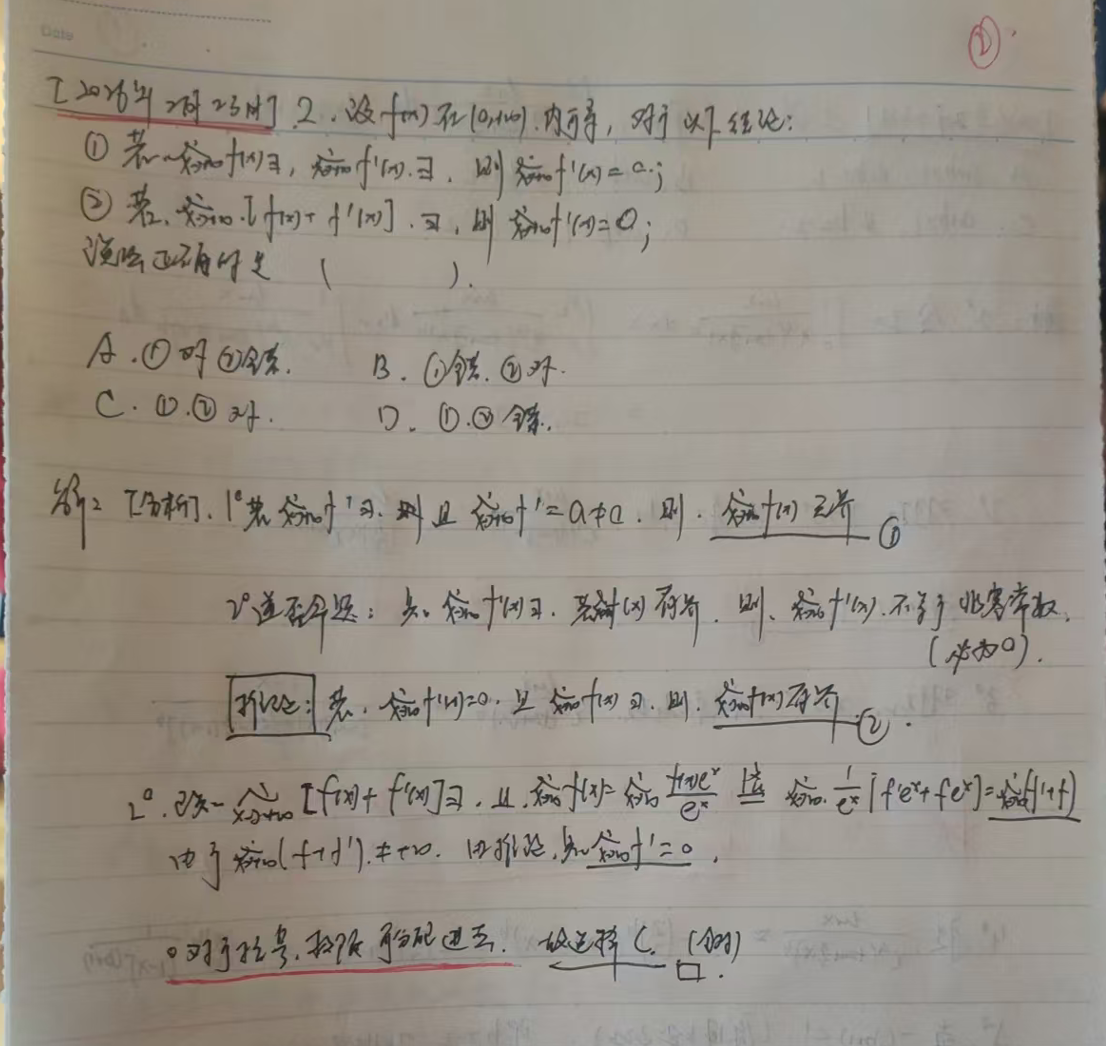 Date
②.
[2026年2月23日]. 2. 设f(x)在(0,+∞)内可导, 对于以下结论:
① 若lim x→+∞ f(x)∃, lim x→+∞ f'(x).∃. 则 lim x→+∞ f'(x)=0;
② 若. lim x→+∞.[f(x)+f'(x)].∃, 则 lim x→+∞ f'(x)=0;
正确的是 ( ).
A.①对②错. B. ①错.②对.
C. ①.②对. D. ①.②错.
解: [分析]. 1° 若 lim x→+∞ f'∃. 且 lim x→+∞ f'=a≠0. 则. lim x→+∞ f(x) 无界 ①
2° 逆否命题: 知. lim x→+∞ f'(x)∃. 若f(x)有界. 则. lim x→+∞ f'(x).不等于非零常数.
(必为0).
推论: 若. lim x→+∞ f'(x)=0. 且 lim x→+∞ f(x)∃. 则. lim x→+∞ f(x)有界 ②.
2°. 已知 lim x→+∞ [f(x)+f'(x)]∃. 且. lim x→+∞ f(x)= lim x→+∞ f(x)e^x/e^x 洛 lim x→+∞. 1/e^x [f'e^x+fe^x]= lim x→+∞ (f'+f)
由于 lim x→+∞ (f+f').≠+∞. 由推论.知 lim x→+∞ f'=0.
。对于括号.极限可分配进去. 故选择C.
□.